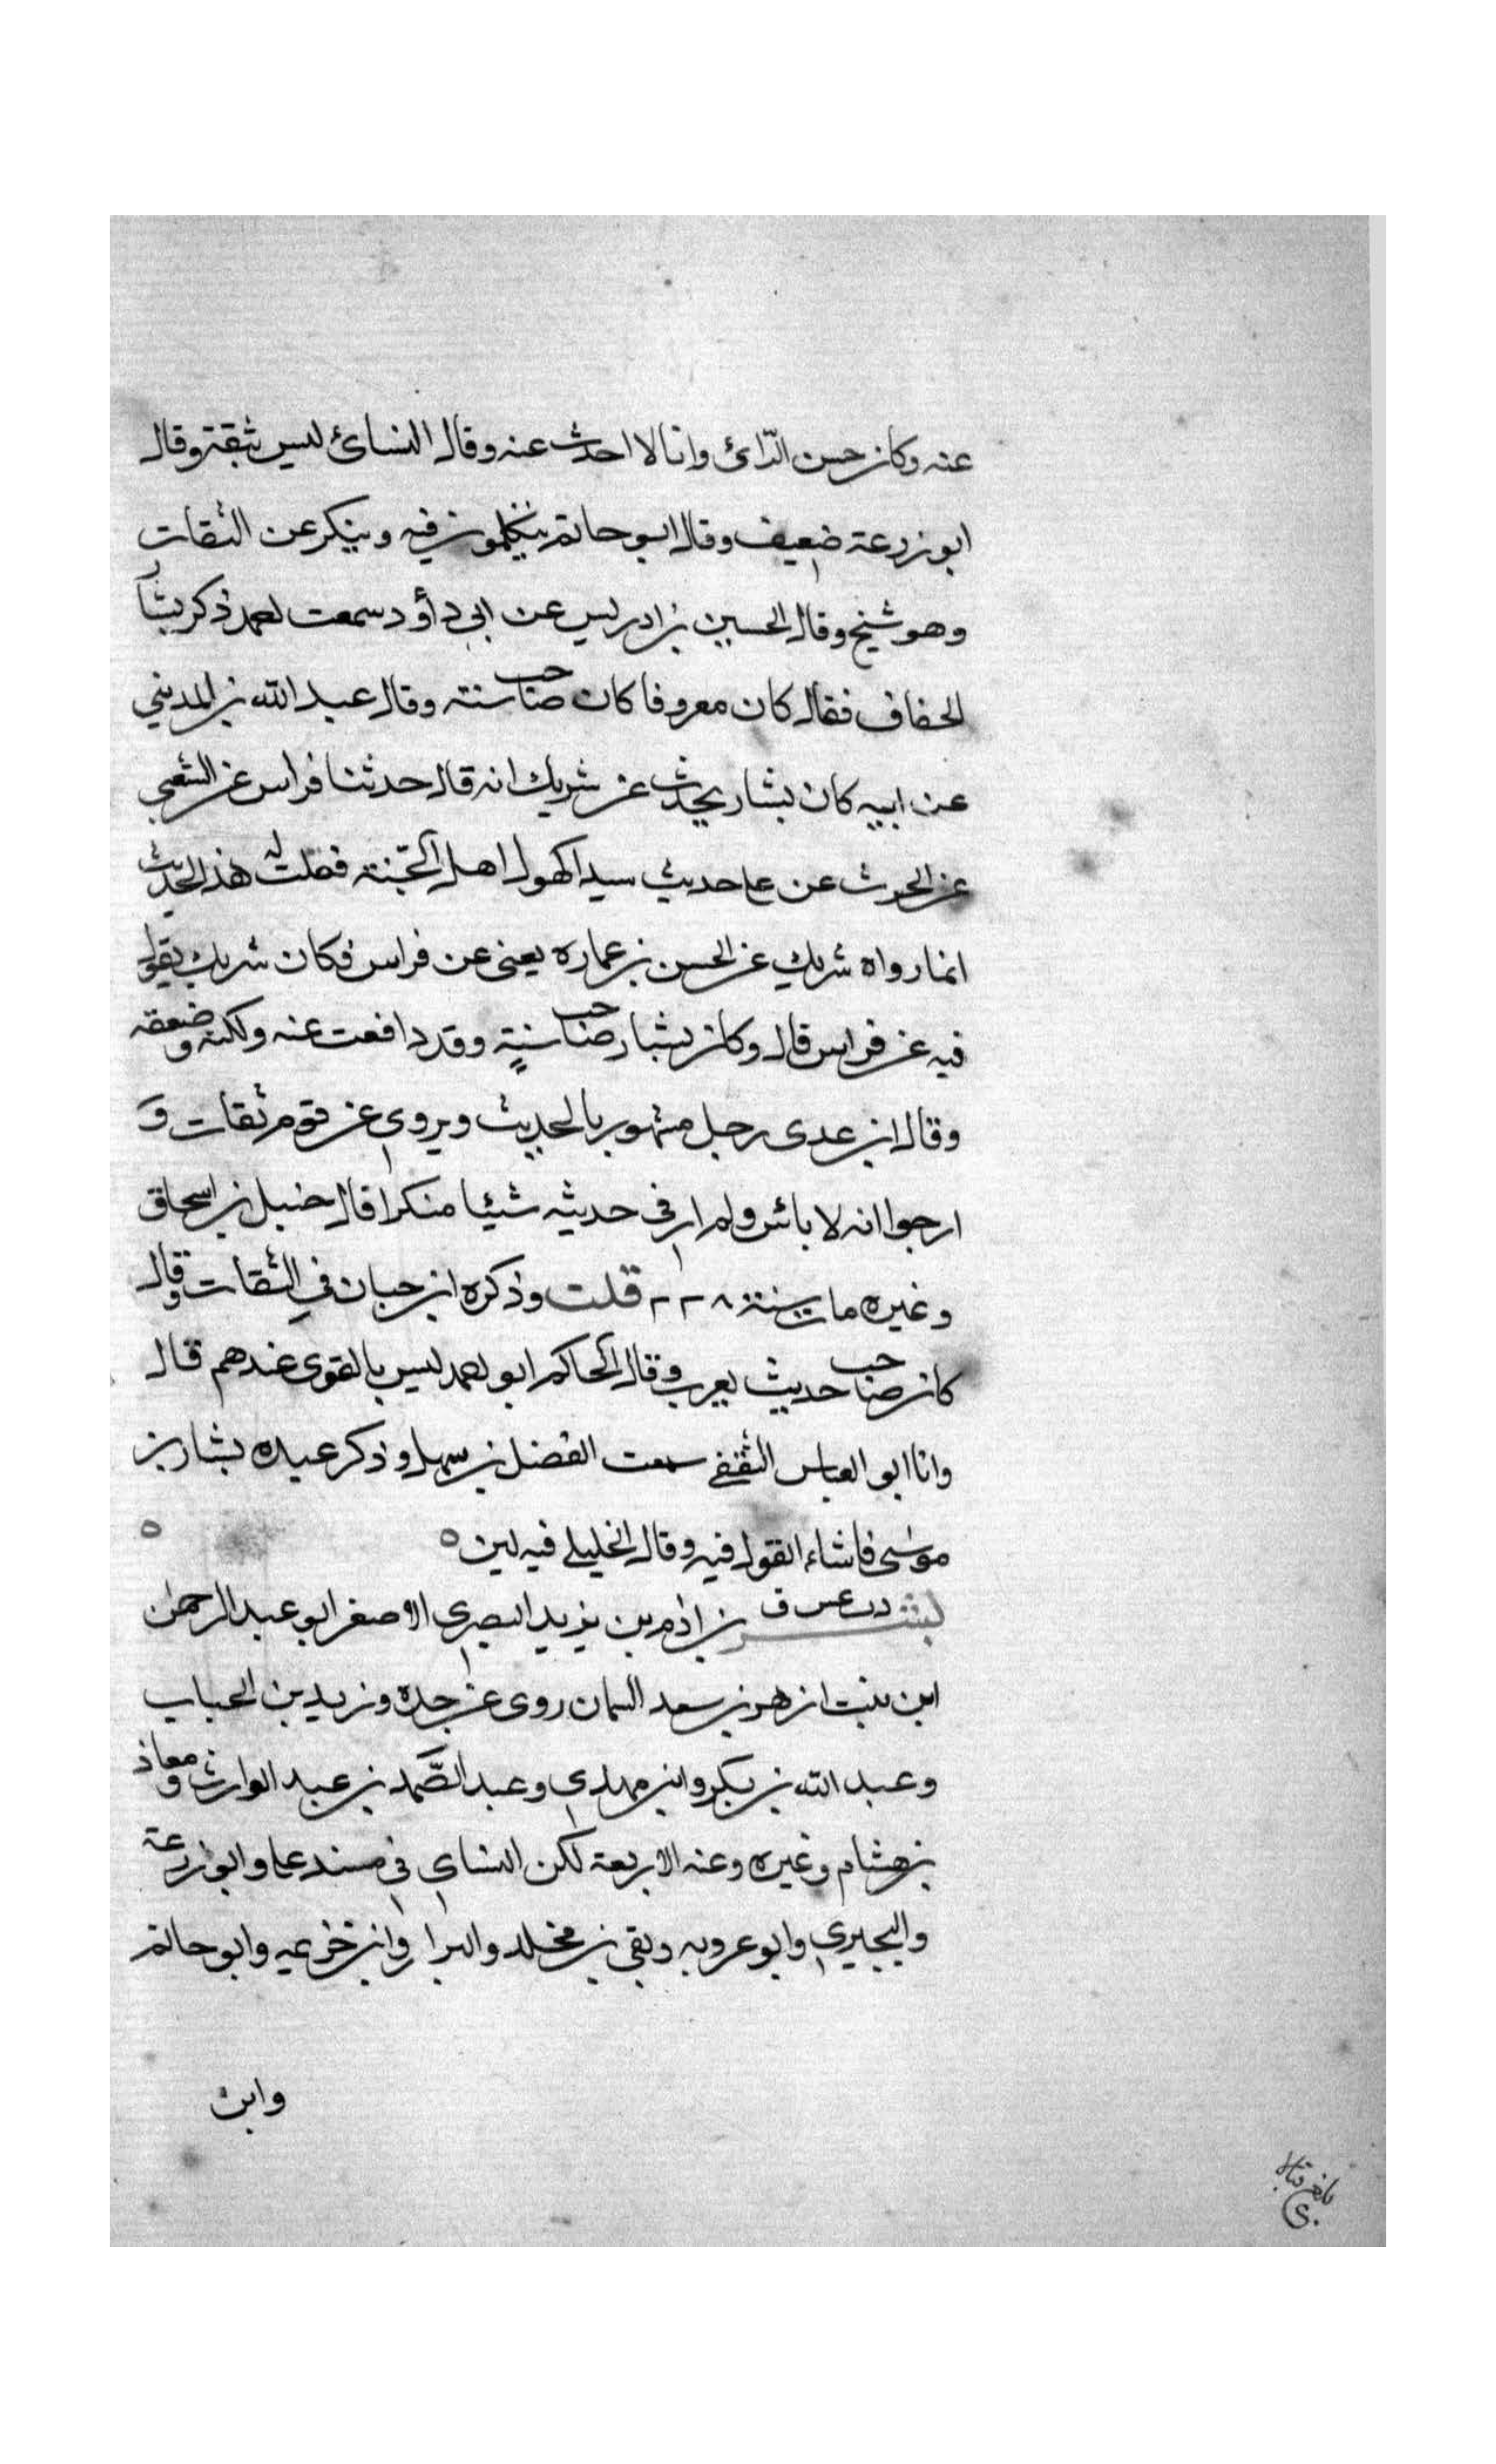 عنه وكان حسن الرّأئ وانا لا احدث عنه وقال النسائ ليس بثقة وقال
ابو زرعة ضعيف وقال ابو حاتم يتكلمون فيه وينكر عن الثقات
وهو شيخ وقال الحسين بن ادريس عن ابي داؤد سمعت احمد ذكر بشار
الخفاف فقال كان معروفا كان صاحب سنة وقال عبد الله بن المديني
عن ابيه كان بشار يحدث عن شريك انه قال حدثنا فراس عن الشعبي
عن الحرث عن على حديث سيدا كهول اهل الجنة فقلت له هذا الحديث
انما رواه شريك عن الحسن بن عماره يعنى عن فراس فكان شريك يقول
فيه عن فراس قال وكان بشار صاحب سنة وقد دافعت عنه ولكنه وضعفه
وقال ابن عدى رجل مشهور بالحديث ويروى عن قوم ثقات و
ارجوا انه لا بائس ولم ار فى حديثه شيئا منكرا قال حنبل بن اسحاق
وغيره مات سنة ٢٢٨ قلت وذكره ابن حبان في الثقات وقال
كان صاحب حديث يغرب وقال الحاكم ابو احمد ليس بالقوى عندهم قال
وانا ابو العباس الثقفى سمعت الفضل بن سهل وذكر عنده بشار بن
موسى فاشاء القول فيه وقال الخليلى فيه لين ٥ ٥
بشر بن ادم بن يزيد البصرى الاصغر ابو عبد الرحمن
ابن بنت ازهر بن سعد السمان روى عن جده وزيد بن الحباب
وعبد الله بن بكر وابن مهدى وعبد الصَّمد بن عبد الوارث ومعاذ
بن هشام وغيره وعنه الاربعة لكن النساى فى مسند على وابو زرعة
والبجيري وابو عروبه وبقى بن مخلد والبزار وابن خزيمه وابو حاتم
وابن